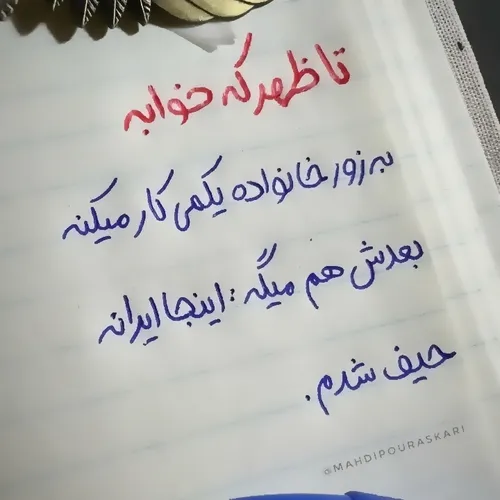 تا ظهر که خوابه
به زور خانواده یکمی کار میکنه
بعدش هم میگه : اینجا ایرانه
حیف شدم .
@MAHDIPOURASKARI